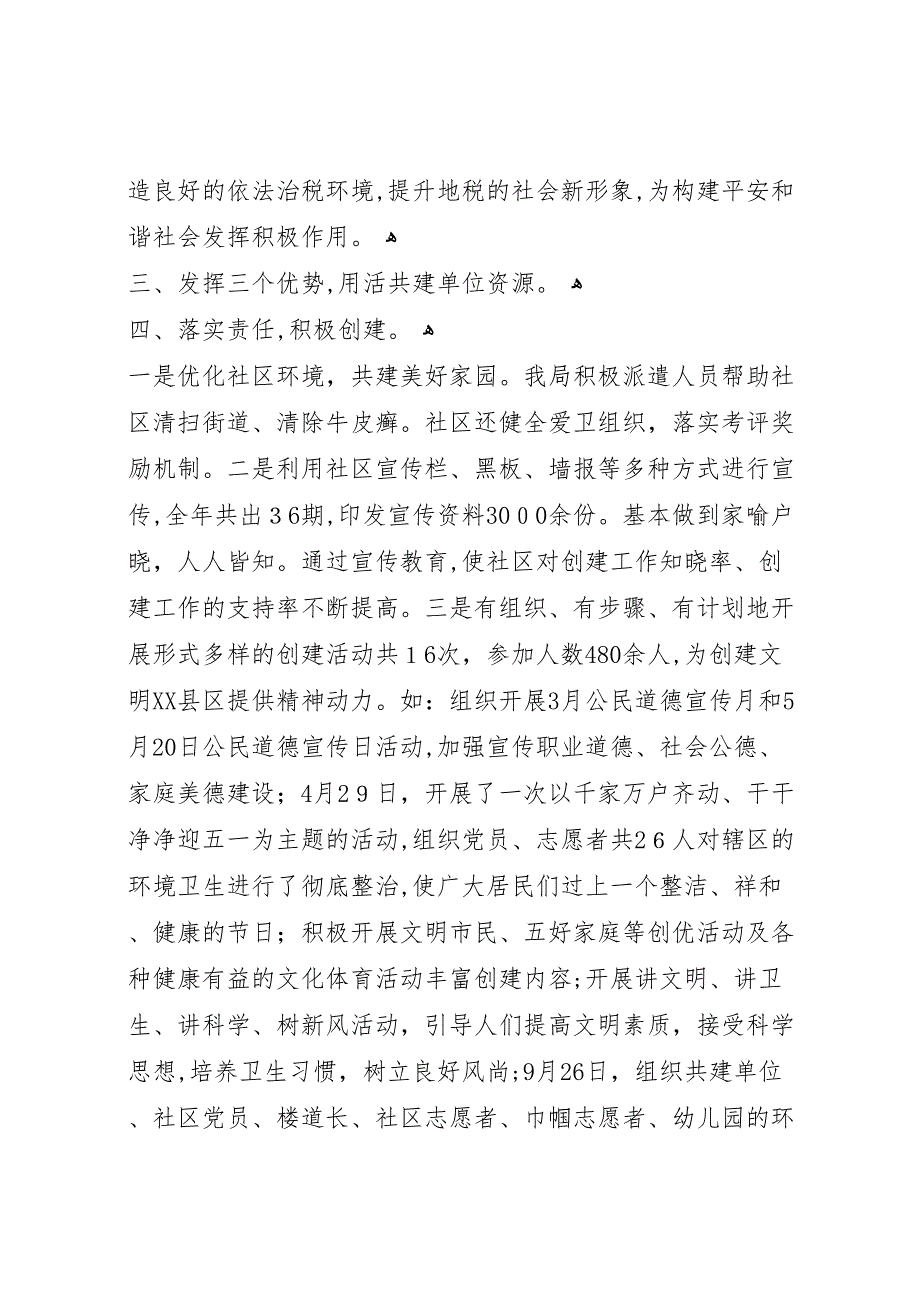 造良好的依法治税环境,提升地税的社会新形象,为构建平安和
谐社会发挥积极作用。 ﻫ
三、发挥三个优势,用活共建单位资源。 ﻫ
四、落实责任,积极创建。 ﻫ
一是优化社区环境，共建美好家园。我局积极派遣人员帮助社
区清扫街道、清除牛皮癣。社区还健全爱卫组织，落实考评奖
励机制。二是利用社区宣传栏、黑板、墙报等多种方式进行宣
传,全年共出３6期,印发宣传资料30００余份。基本做到家喻户
晓，人人皆知。通过宣传教育,使社区对创建工作知晓率、创
建工作的支持率不断提高。三是有组织、有步骤、有计划地开
展形式多样的创建活动共１6次，参加人数480余人,为创建文
明XX县区提供精神动力。如：组织开展3月公民道德宣传月和5
月20日公民道德宣传日活动,加强宣传职业道德、社会公德、
家庭美德建设；4月2９日，开展了一次以千家万户齐动、干干
净净迎五一为主题的活动,组织党员、志愿者共2６人对辖区的
环境卫生进行了彻底整治,使广大居民们过上一个整洁、祥和
、健康的节日；积极开展文明市民、五好家庭等创优活动及各
种健康有益的文化体育活动丰富创建内容;开展讲文明、讲卫
生、讲科学、树新风活动，引导人们提高文明素质，接受科学
思想,培养卫生习惯，树立良好风尚;9月26日，组织共建单位
、社区党员、楼道长、社区志愿者、巾帼志愿者、幼儿园的环